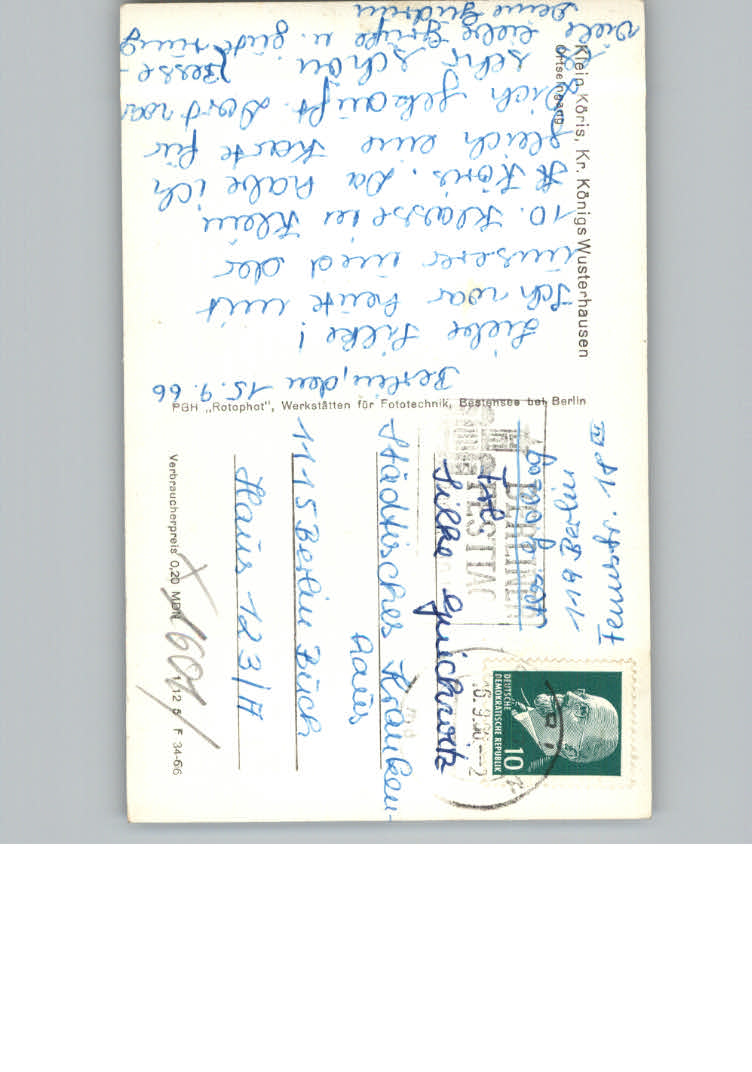 Klein Köris, Kr. Königs Wusterhausen
Ortseingang
Berlin, den 15.9.66
Liebe Silke!
Ich war heute mit
unserer und der
10. Klasse in Klein
Köris. Da habe ich
gleich eine Karte für
Dich gekauft. Dort war
es sehr schön.
Viele liebe Grüße u. gute
Besserung
Deine Gudrun
PGH „Rotophot“, Werkstätten für Fototechnik, Bestensee bei Berlin
1191 Berlin
Fennstr. 18 IV
BERLINER
FESTTAGE
16.9.66
DEUTSCHE
DEMOKRATISCHE REPUBLIK
10
Silke
Städtisches Kranken-
haus
1115 Berlin Buch
Haus 123/A
Verbraucherpreis 0,20 MDN 1 12 5 F 34-66